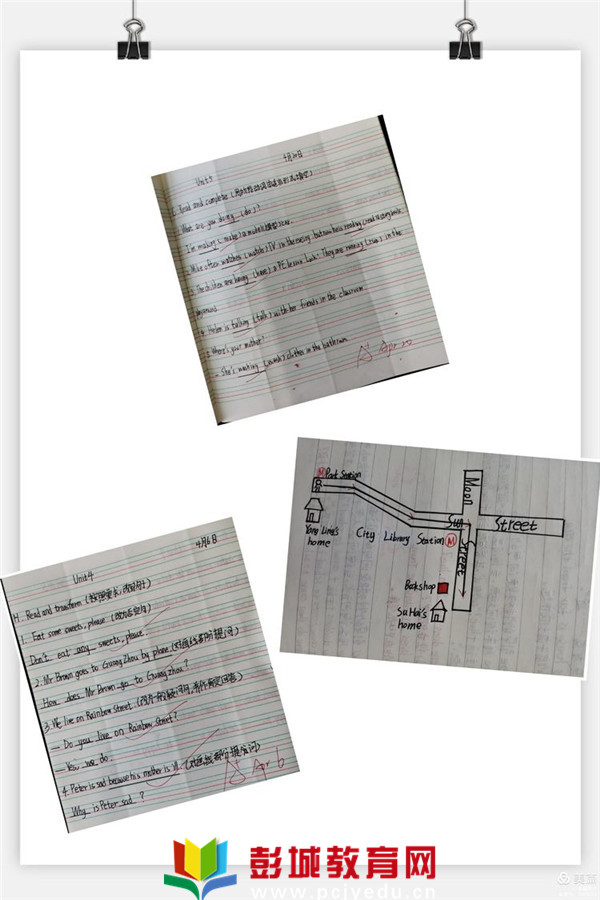 Unit 5
4月20日
What are you doing (do)?
I'm making (make) a model
Mike often watches (watch) TV in the evening, but now he is reading (read)
3. The children are having (have) a PE lesson. Look! They are running (run) in the
playground.
4. Helen is talking (talk) with her friends in the classroom.
5. Where's your mother?
She's washing (wash) clothes in the bathroom.
A Apr 20
Park Station
Yang Ling's
home
City Library Station
M
Moon
Street
Sun
Street
Bookshop
Su Hai's
home
4月6日
Unit 4
H. Read and transform (按照要求,改写句子)
1. Eat some sweets, please. (改为否定句)
Don't eat any sweets, please.
2. Mr Brown goes to Guangzhou by plane. (对画线部分提问)
How does Mr Brown go to Guangzhou?
3. We live on Rainbow Street.
— Do you live on Rainbow Street?
— Yes, we do.
4. Peter is sad because his mother is ill. (对画线部分提问)
Why is Peter sad?
A Apr 6
彭城教育网
www.pcjyedu.cn